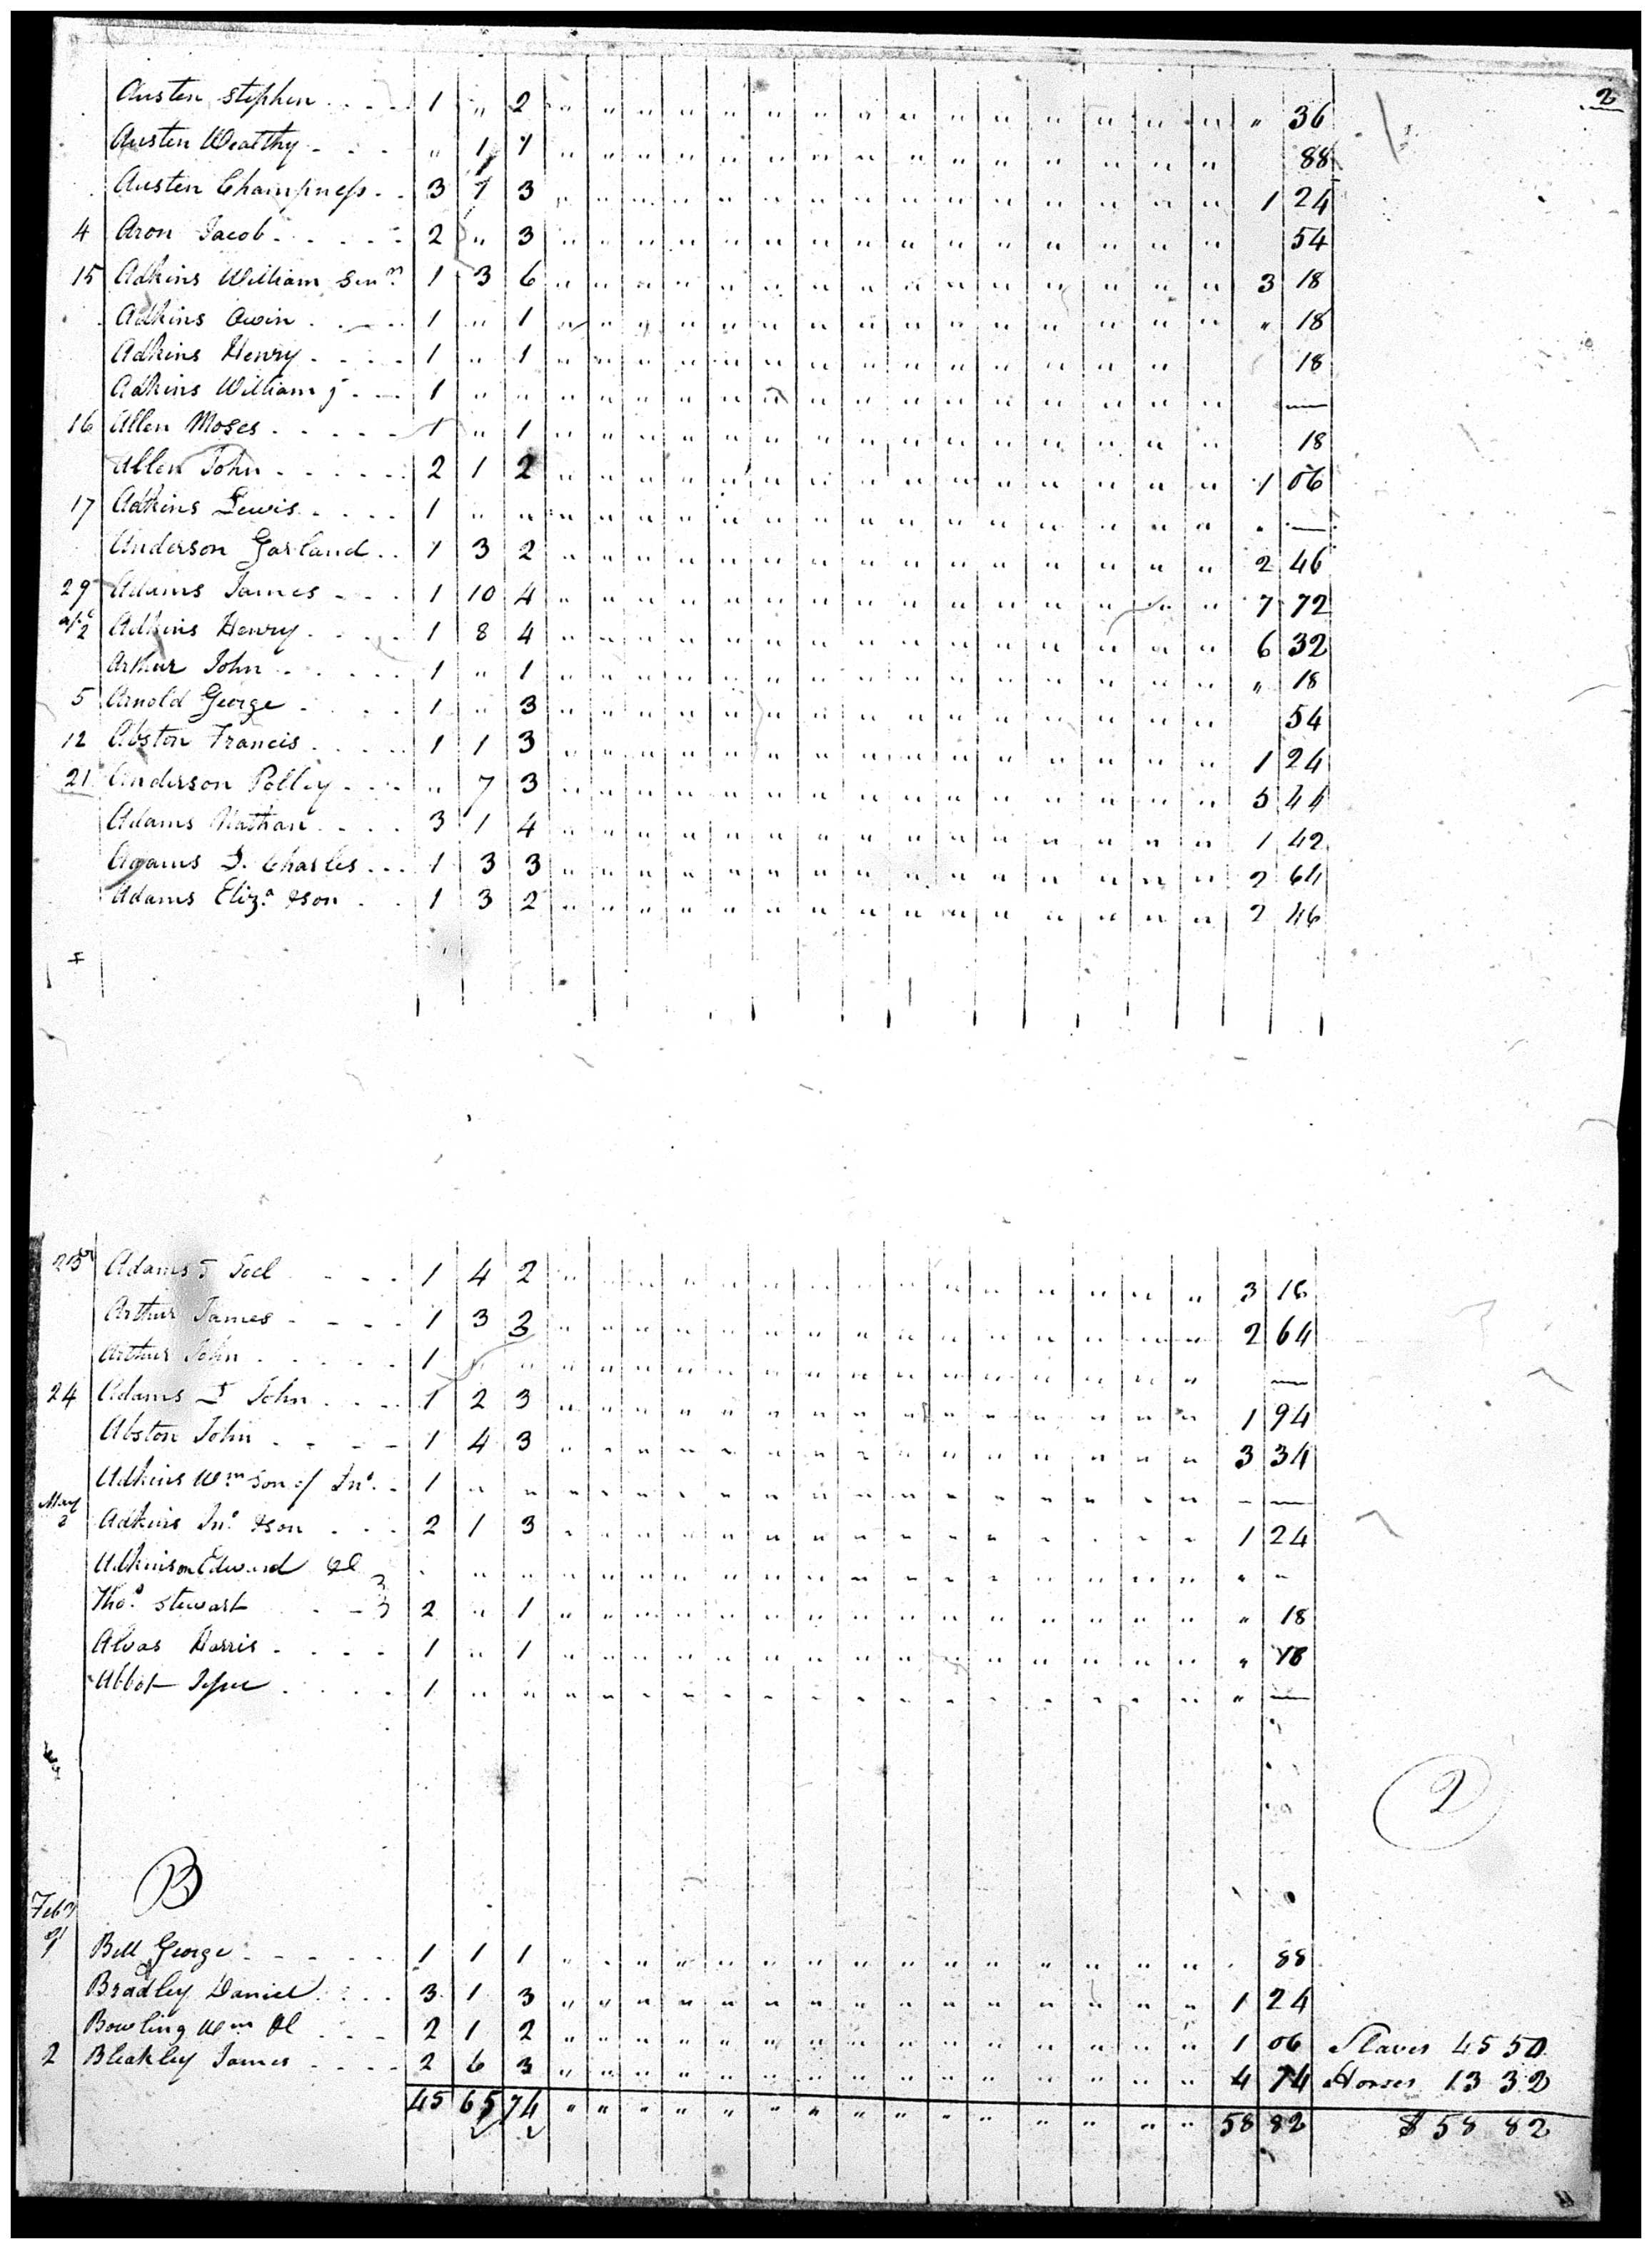 2
Austen Stephen . . . . 1 " 2 " " " " " " " " " " " " " " " " 36
Austen Wealthy - - - " 1 1 " " " " " " " " " " " " " " " 88
Austen Champness . . 3 1 3 " " " " " " " " " " " " " " " 1 24
4 Aron Jacob . . . . . 2 " 3 " " " " " " " " " " " " " " " 54
15 Adkins William Senr. 1 3 6 " " " " " " " " " " " " " " " 3 18
Adkins Owin . . . . 1 " 1 " " " " " " " " " " " " " " " " 18
Adkins Henry . . . . 1 " 1 " " " " " " " " " " " " " " 18
Adkins William j - . . 1 " " " " " " " " " " " " " " " " " —
16 Allen Moses . . . . . 1 " 1 " " " " " " " " " " " " " " " 18
Allen John . . . . . 2 1 2 " " " " " " " " " " " " " " " 1 06
17 Adkins Lewis . . . . 1 " " " " " " " " " " " " " " " " " . —
Anderson Garland . . 1 3 2 " " " " " " " " " " " " " " " 2 46
29 Adams James - - - 1 10 4 " " " " " " " " " " " " " " " 7 72
2 Adkins Henry . . . . 1 8 4 " " " " " " " " " " " " " " " 6 32
Arthur John . . . . . 1 " 1 " " " " " " " " " " " " " " " " 18
5 Arnold George . . . . 1 " 3 " " " " " " " " " " " " " " " 54
12 Abston Francis . . . . 1 1 3 " " " " " " " " " " " " " " " 1 24
21 Anderson Polley - - - " 7 3 " " " " " " " " " " " " " " " 5 44
Adams Nathan . . . . 3 1 4 " " " " " " " " " " " " " " " 1 42
Adams D. Charles . . . 1 3 3 " " " " " " " " " " " " " " " 2 64
Adams Eliza. & son . . 1 3 2 " " " " " " " " " " " " " " " 2 46
23 Adams T Joel - - - 1 4 2 " " " " " " " " " " " " " " " 3 16
Arthur James - - - - 1 3 3 " " " " " " " " " " " " " " " 2 64
Arthur John . . . . . 1 " " " " " " " " " " " " " " " " " —
24 Adams T John . . . . 1 2 3 " " " " " " " " " " " " " " " 1 94
Abston John . - - - 1 4 3 " " " " " " " " " " " " " " " 3 34
Adkins Wm son of Jno. - 1 " " " " " " " " " " " " " " " " " - —
May 2 Adkins Jno. & son . . . 2 1 3 " " " " " " " " " " " " " " " 1 24
Adkinson Edward &
Thos. Stewart . - 2 " 1 " " " " " " " " " " " " " " " " 18
Alvas Harris . . . . 1 " 1 " " " " " " " " " " " " " " " " 18
Abbot Jesse . . . . 1 " " " " " " " " " " " " " " " " " " —
2
B
Feby
Bell George - - - - - 1 1 1 " " " " " " " " " " " " " " " . 88
Bradley Daniel . . . . 3 1 3 " " " " " " " " " " " " " " " 1 24
Bowling Wm . . . 2 1 2 " " " " " " " " " " " " " " " 1 06 Slaves 45 50
2 Bleakley James . . . . 2 6 3 " " " " " " " " " " " " " " " 4 74 Horses 13 32
45 65 74 " " " " " " " " " " " " " " " 58 82 $ 58 82